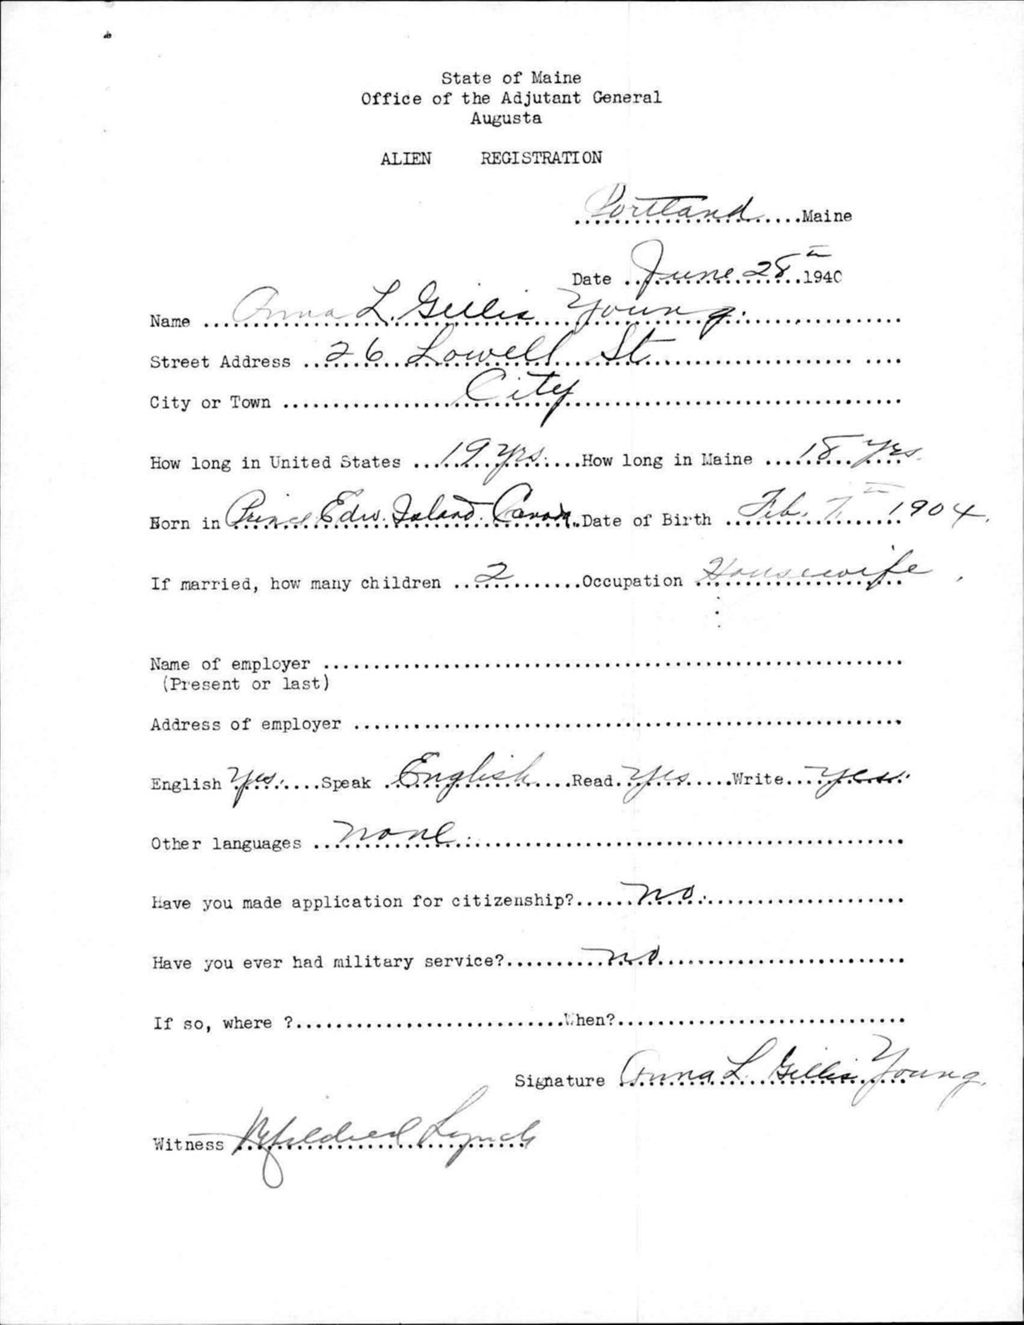 State of Maine
Office of the Adjutant General
Augusta
ALIEN REGISTRATION
Portland Maine
Date June 28th 1940
Name Anna L. Gillis Young.
Street Address 26 Lowell St.
City or Town City
How long in United States 19 yrs. How long in Maine 18 yrs.
Born in Prince Edw. Island. Canada. Date of Birth Feb. 7th 1904.
If married, how many children 2 Occupation Housewife
Name of employer
(Present or last)
Address of employer
English Yes. Speak English Read Yes Write yes.
Other languages none.
Have you made application for citizenship? no.
Have you ever had military service? no.
If so, where ? When?
Signature Anna L. Gillis Young.
Witness Mildred Lynch